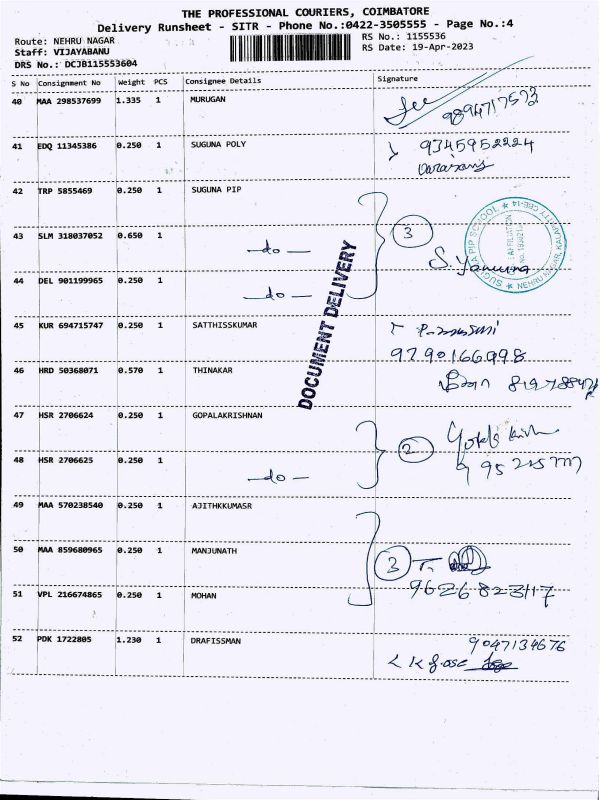 THE PROFESSIONAL COURIERS, COIMBATORE
Delivery Runsheet - SITR - Phone No.:0422-3505555 - Page No.:4
Route: NEHRU NAGAR
Staff: VIJAYABANU
DRS No.: DCJB115553604
RS No.: 1155536
RS Date: 19-Apr-2023
S No Consignment No Weight PCS Consignee Details Signature
40 MAA 298537699 1.335 1 MURUGAN
9894717573
41 EDQ 11345386 0.250 1 SUGUNA POLY 9345952224
42 TRP 5855469 0.250 1 SUGUNA PIP
43 SLM 318037052 0.650 1 —do— 3
44 DEL 901199965 0.250 1 —do—
SUGUNA PIP SCHOOL
AFFILIATION
NEHRU NAGAR, KALAPATTY CBE-14
DOCUMENT DELIVERY
45 KUR 694715747 0.250 1 SATTHISSKUMAR
9790166998
46 HRD 50368071 0.570 1 THINAKAR
47 HSR 2706624 0.250 1 GOPALAKRISHNAN
48 HSR 2706625 0.250 1 —do— 2
49 MAA 570238540 0.250 1 AJITHKKUMASR
50 MAA 859680965 0.250 1 MANJUNATH 3
51 VPL 216674865 0.250 1 MOHAN 9626823117
52 PDK 1722805 1.230 1 DRAFISSMAN 9047134676